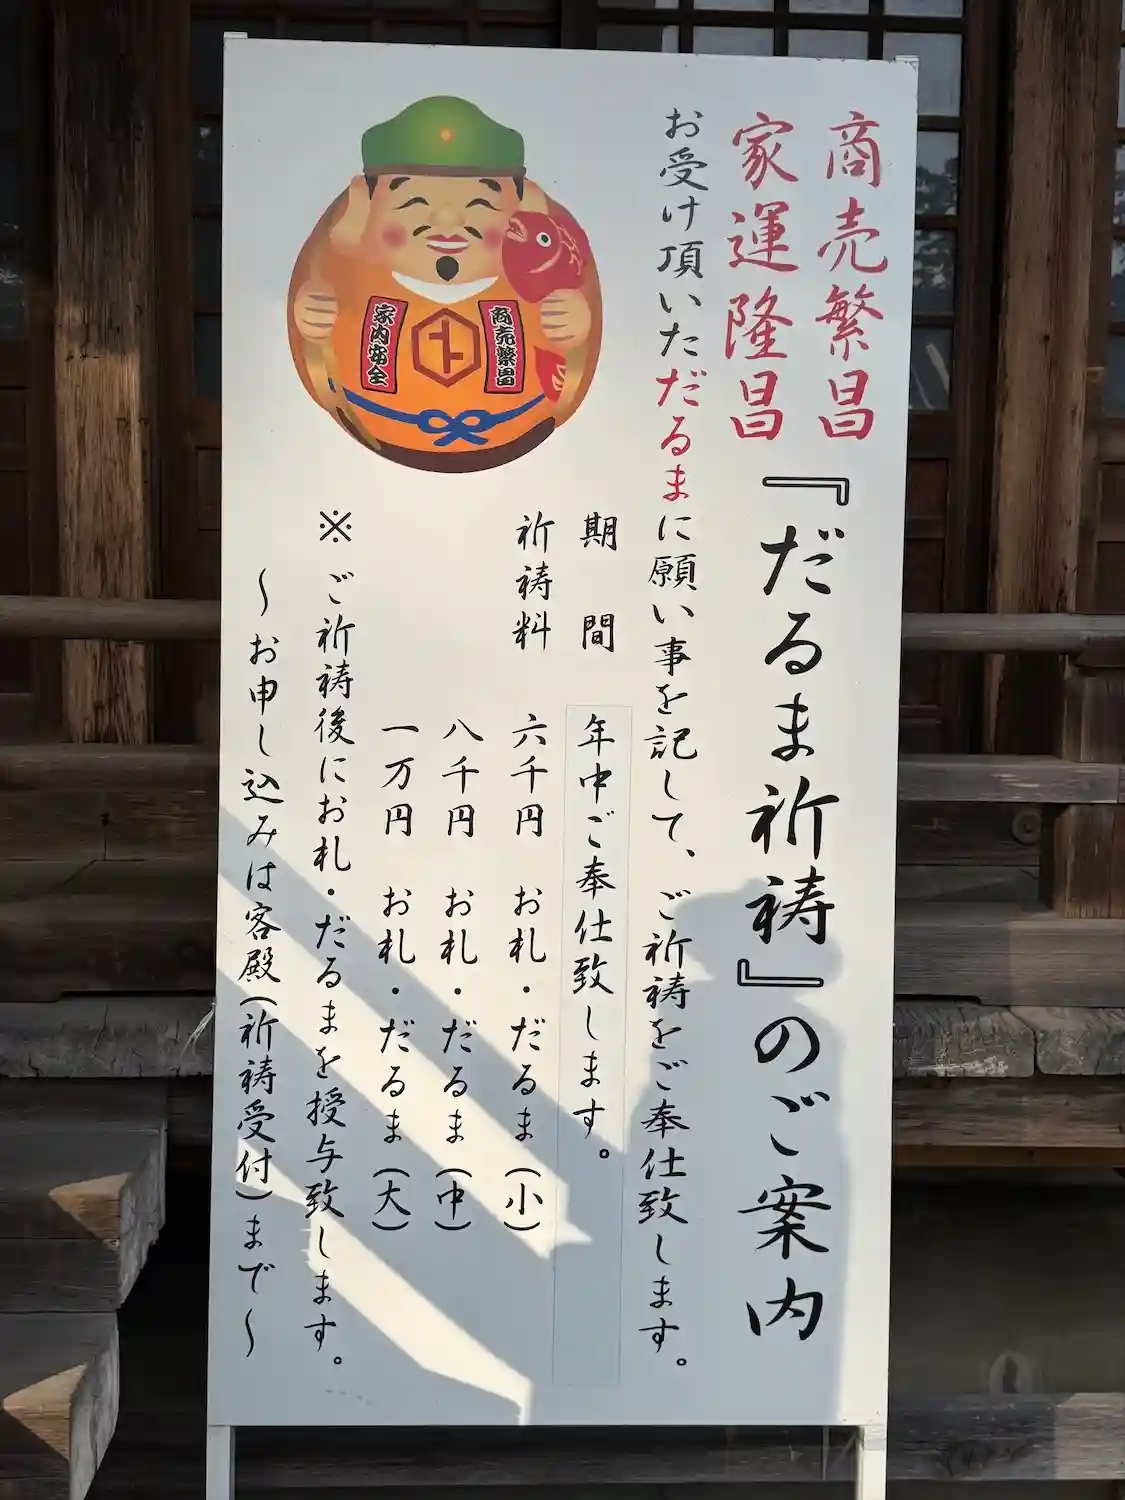 商売繁昌
家運隆昌
『だるま祈祷』のご案内
お受け頂いただるまに願い事を記して、ご祈祷をご奉仕致します。
期間 年中ご奉仕致します。
祈祷料 六千円 お札・だるま(小)
八千円 お札・だるま(中)
一万円 お札・だるま(大)
※ ご祈祷後にお札・だるまを授与致します。
〜お申し込みは客殿(祈祷受付)まで〜
商売繁昌
家内安全